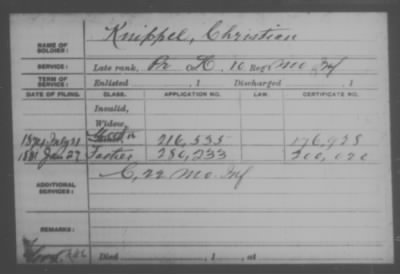 NAME OF SOLDIER: Knippel, Christian
SERVICE: Late rank, Pr Co. K, 10 Reg't Mo Inf
TERM OF SERVICE: Enlisted , 1 Discharged , 1
DATE OF FILING. CLASS. APPLICATION NO. LAW. CERTIFICATE NO.
Invalid,
Widow,
July 21 216,535 176,928
1881 Jan 27 Father 280,233
ADDITIONAL SERVICES: C, 22 Mo. Inf
REMARKS:
Died , 1 , at